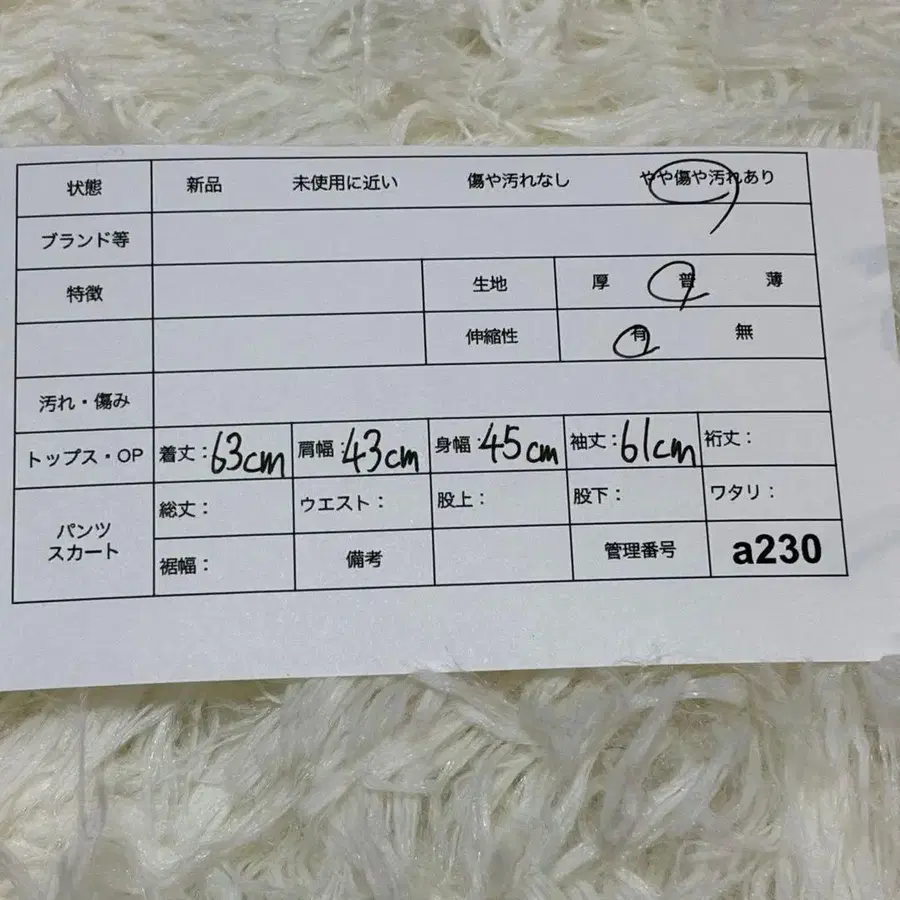 状態 新品 未使用に近い 傷や汚れなし やや傷や汚れあり
ブランド等
特徴 生地 厚 普 薄
伸縮性 有 無
汚れ・傷み
トップス・OP 着丈：63cm 肩幅：43cm 身幅：45cm 袖丈：61cm 裄丈：
パンツ
スカート
総丈： ウエスト： 股上： 股下： ワタリ：
裾幅： 備考 管理番号 a230